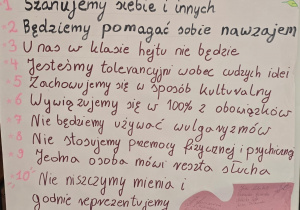 1 Szanujemy siebie i innych
2 Będziemy pomagać sobie nawzajem
3 U nas w klasie hejtu nie będzie
4 Jesteśmy tolerancyjni wobec cudzych idei
5 Zachowujemy się w sposób kulturalny
6 Wywiązujemy się w 100% z obowiązków
7 Nie będziemy używać wulgaryzmów
8 Nie stosujemy przemocy fizycznej i psychicznej
9 Jedna osoba mówi reszta słucha
10 Nie niszczymy mienia i
godnie reprezentujemy